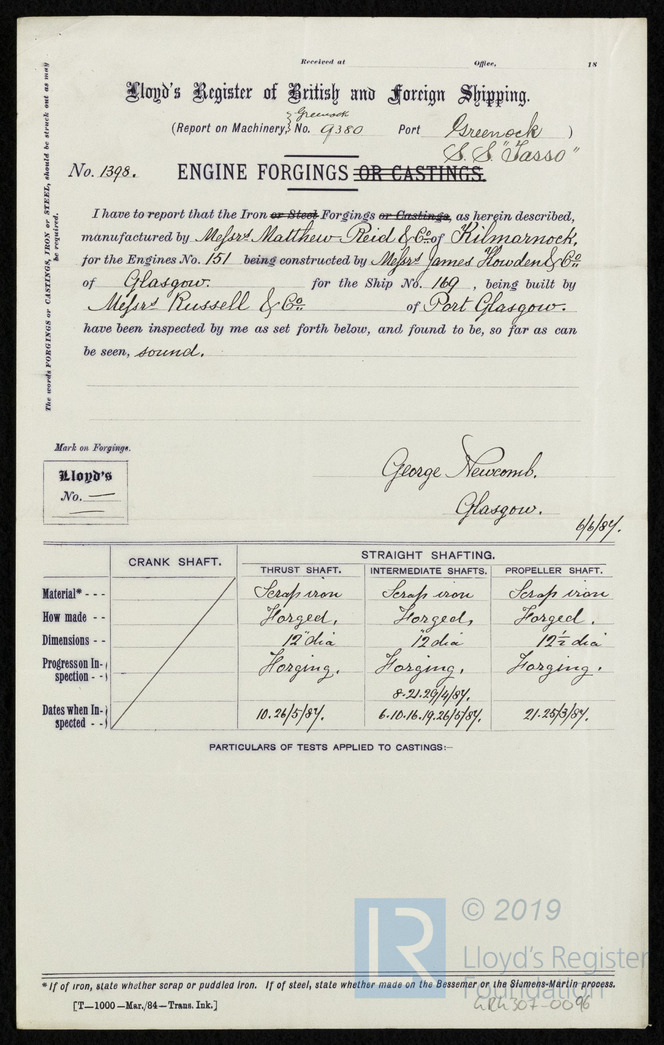 Received at Office, 18
Lloyd's Register of British and Foreign Shipping.
Greenock
(Report on Machinery, No. 9380 Port Greenock )
S. S. "Tasso"
No. 1398. ENGINE FORGINGS OR CASTINGS.
I have to report that the Iron or Steel Forgings or Castings, as herein described,
manufactured by Messrs Matthew Reid & Co. of Kilmarnock,
for the Engines No. 151 being constructed by Messrs James Howden & Co
of Glasgow. for the Ship No. 169, being built by
Messrs Russell & Co. of Port Glasgow.
have been inspected by me as set forth below, and found to be, so far as can
be seen, sound.
The words FORGINGS or CASTINGS, IRON or STEEL, should be struck out as may
be required.
Mark on Forgings.
Lloyd's
No. —
George Newcomb.
Glasgow.
6/6/87.
CRANK SHAFT. STRAIGHT SHAFTING.
THRUST SHAFT. INTERMEDIATE SHAFTS. PROPELLER SHAFT.
Material* - - - Scrap iron Scrap iron Scrap iron
How made - - Forged, Forged, Forged.
Dimensions - - 12" dia 12 dia 12½ dia
Progress on In-
spection - - Forging. Forging. Forging.
8.21.29/4/87.
Dates when In-
spected - - 10.26/5/87. 6.10.16.19.26/5/87. 21.25/3/87.
PARTICULARS OF TESTS APPLIED TO CASTINGS:–
© 2019
Lloyd's Register
Foundation
*If of iron, state whether scrap or puddled iron. If of steel, state whether made on the Bessemer or the Siemens-Martin process.
[T—1000—Mar./84—Trans. Ink.]
GRK307-0096